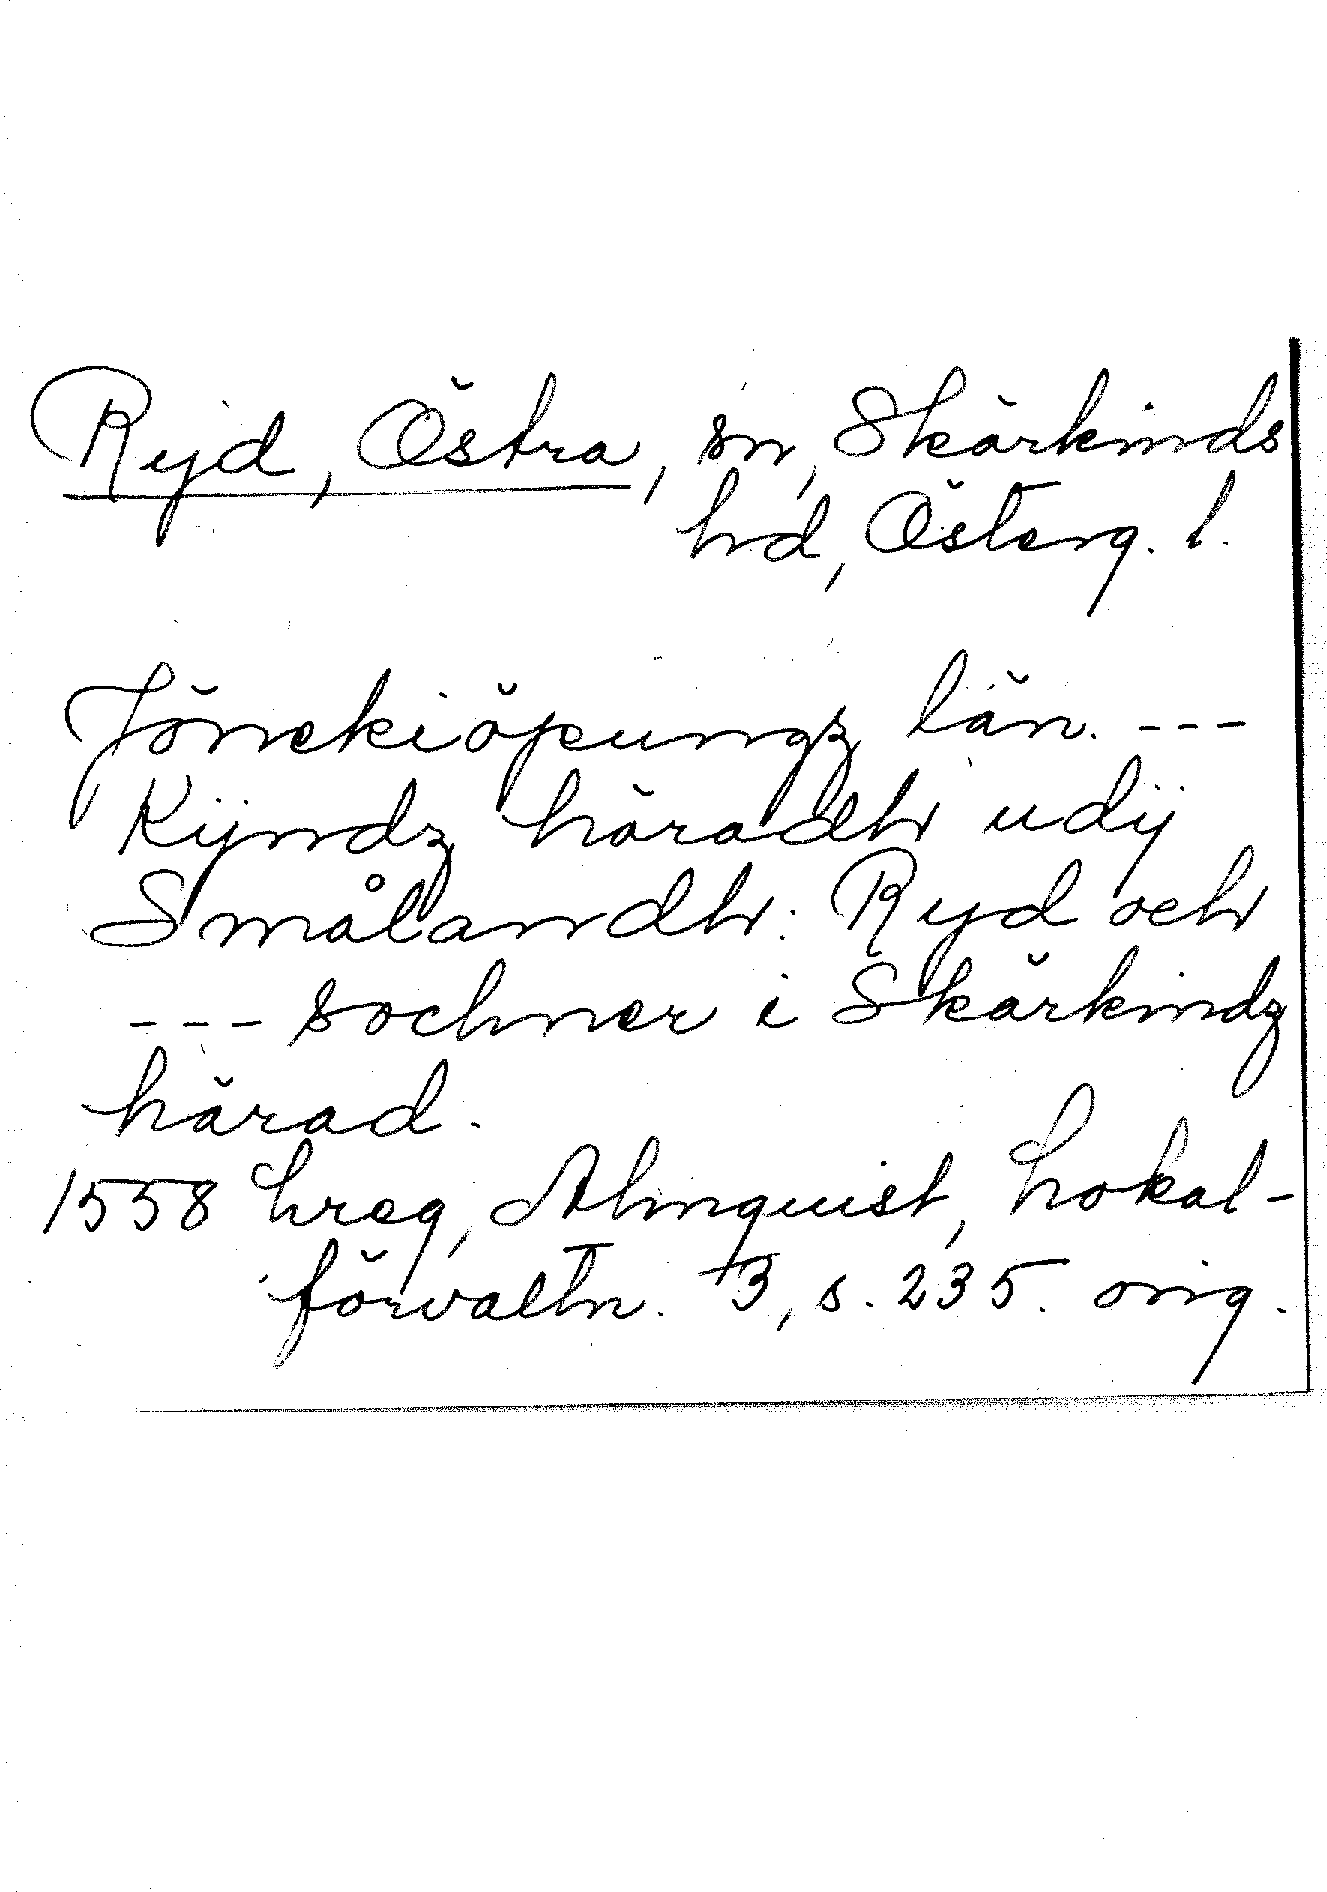 Ryd, Östra, sn, Skärkinds
hd, Österg. l.
Jönekiöpungz län. ---
Kÿndz häradh udÿ
Smålandh: Ryd och
--- sochner i Skärkindz
härad.
1558 hreg, Almquist, Lokal-
förvaltn. 3, s. 235. orig.